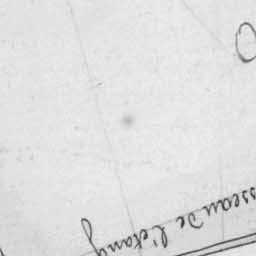 sseau De l'etang